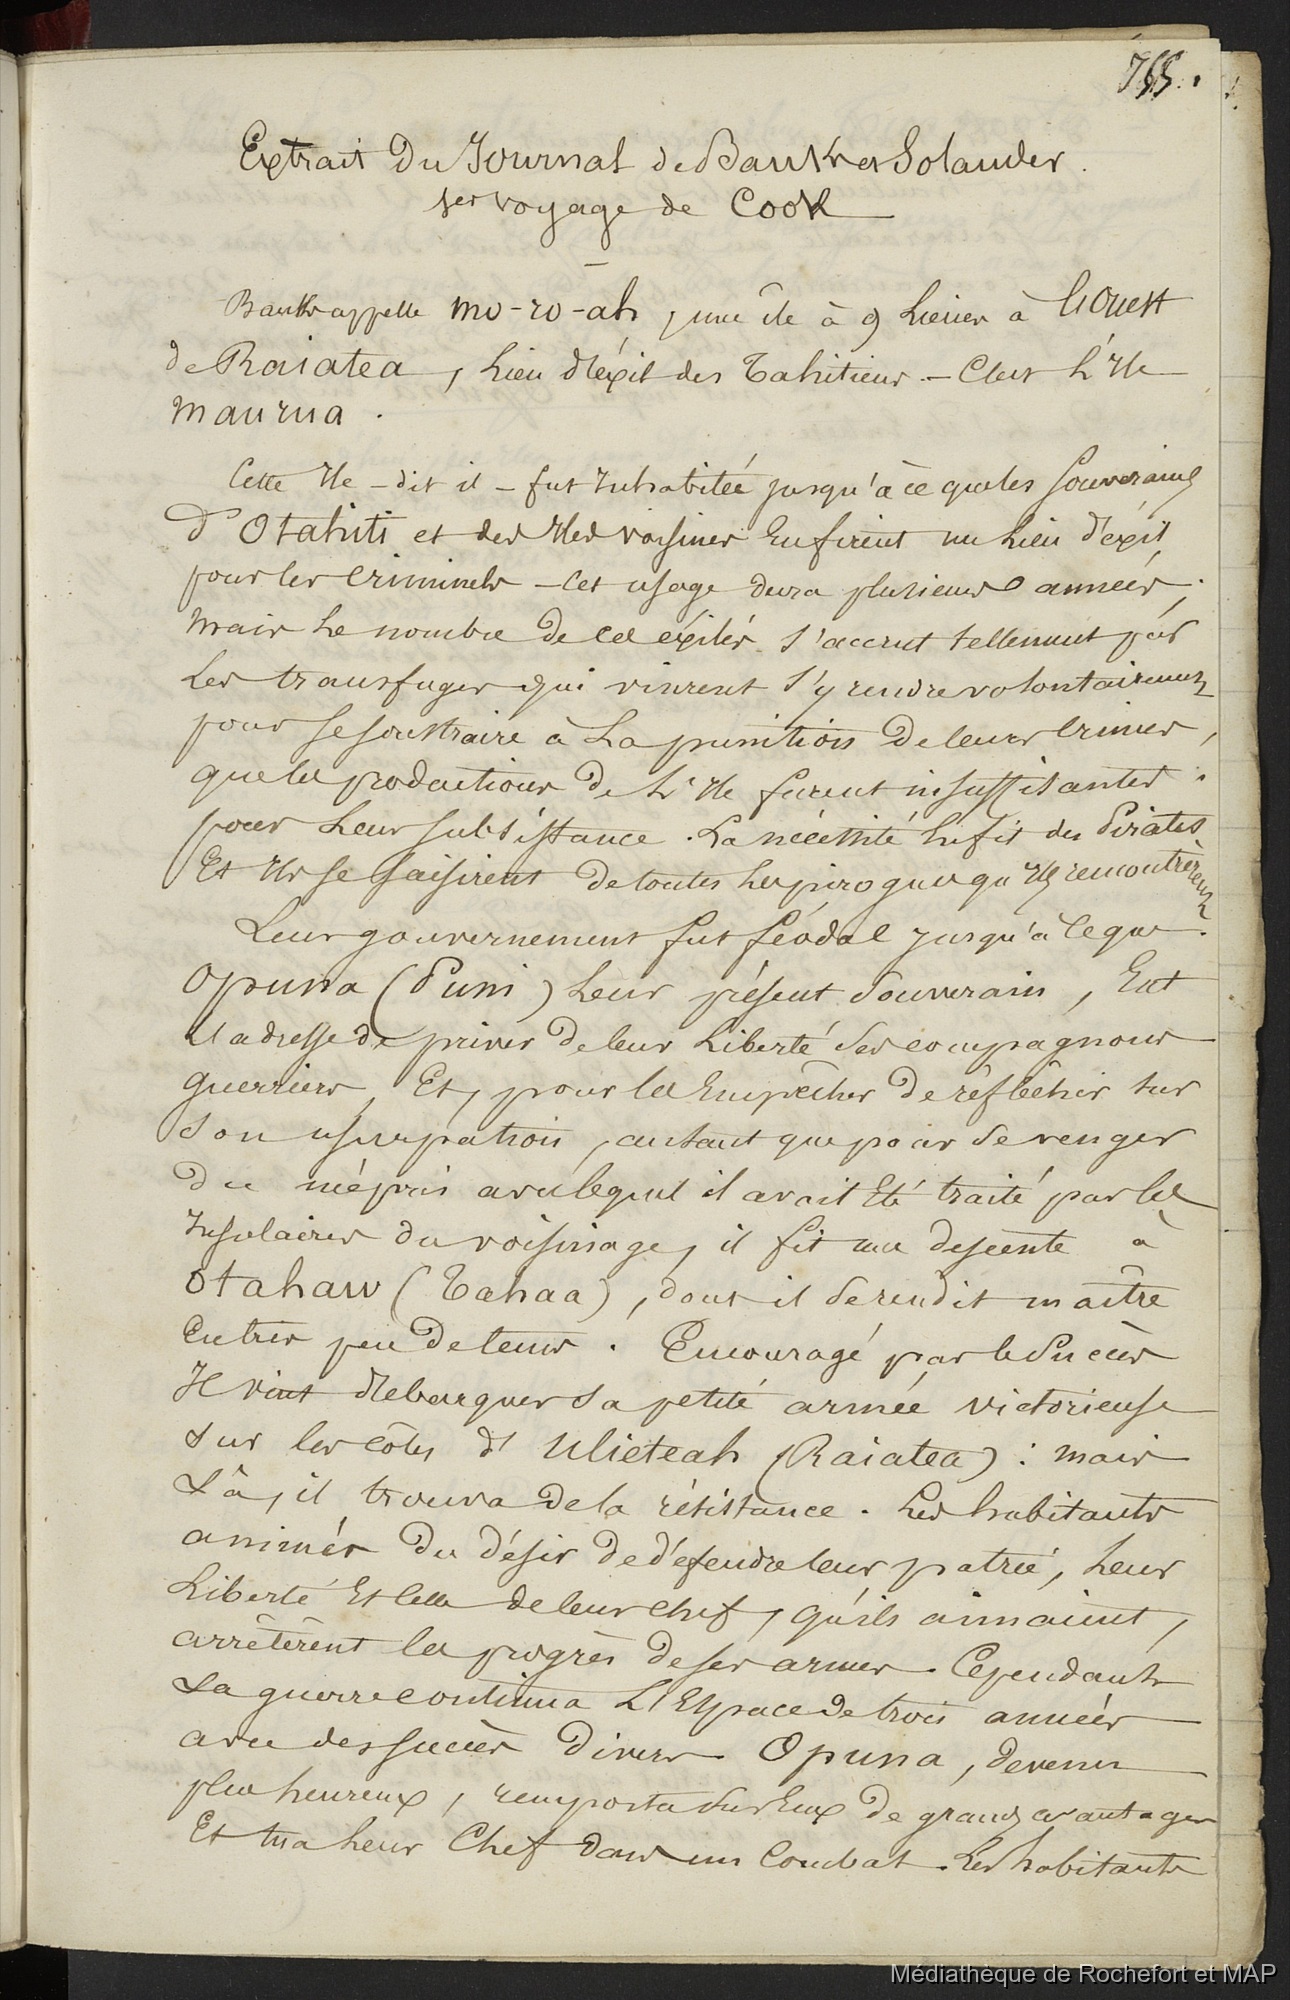 755.
Extrait Du Journal de Banks et Solander.
1er voyage de Cook
Banks appelle mo-ro-ah, une île à 9 lieues à l'Ouest
de Raiatea, lieu d'éxil des Tahitiens. — C'est l'Ile
Maurua.
Cette Ile — dit il — fut Inhabitée jusqu'à ce que les Souverains
D'Otahiti et des Iles voisines En firent un lieu d'éxil
pour les Criminels — Cet usage dura plusieurs années;
Mais le nombre de ces éxilés s'accrut tellement par
les transfuges qui vinrent s'y rendre volontairement
pour se soustraire à la punition de leurs Crimes,
que les productions de l'Ile furent insuffisantes
pour leur subsistance. La nécessité les fit des Pirates
Et Ils se saisirent de toutes les pirogues qu'Ils rencontrèrent
Leur gouvernement fut féodal jusqu'à ce que
Opuna (Puni) leur présent Souverain, Eut
l'adresse de priver de leur Liberté ses compagnons
guerriers, Et, pour les Empêcher de réfléchir sur
Son usurpation, autant que pour se venger
Du mépris avec lequel il avait Eté traité par les
Insulaires du voisinage, il fit une descente à
Otahaw (Tahaa), dont il se rendit maître
En très peu de tems. Encouragé par le Succès
Il vint débarquer sa petite armée victorieuse
Sur les côtes d'Ulieteah (Raiatea): mais
Là, il trouva de la résistance. Les habitants
animés Du désir de défendre leur patrie, leur
Liberté Et celle de leur chef, qu'ils aimaient,
arrêtèrent les progrès de ses armes. Cependant
La guerre continua l'Espace de trois années
avec des succès Divers. Opuna, devenu
plus heureux, remporta sur Eux de grands avantages
Et tua leur Chef dans un Combat. Les habitants
Médiathèque de Rochefort et MAP